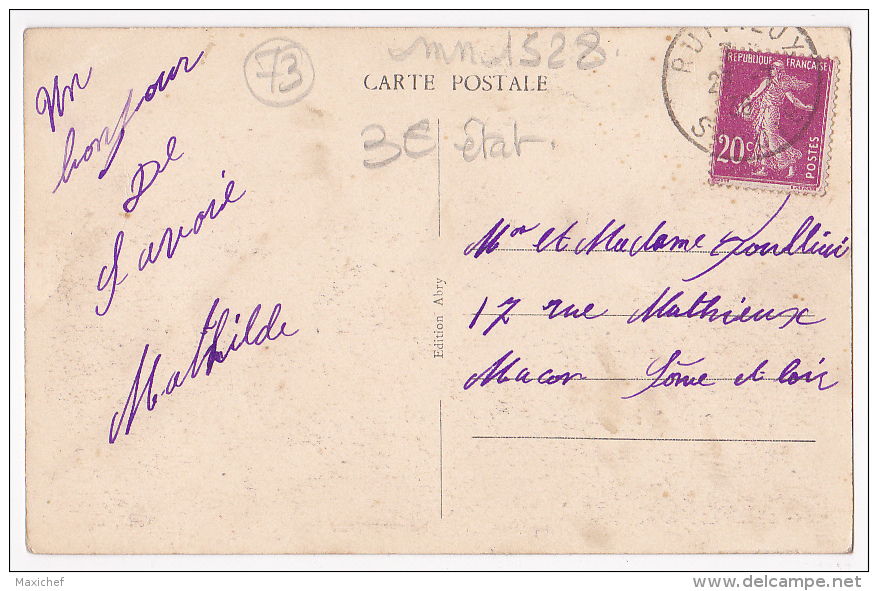 73
mn 1528
CARTE POSTALE
3€ État.
RUFFIEUX
REPUBLIQUE FRANÇAISE
20c
POSTES
Un
bonjour
De
Savoie
Mathilde
Edition Abry
Mr et Madame
17 rue Mathieux
Macon Sôme et loir
Maxichef
www.delcampe.net